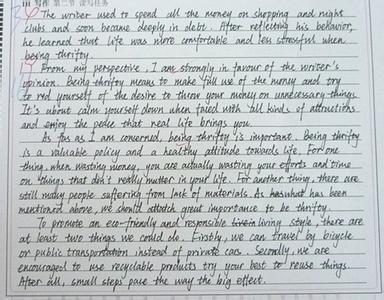 写作 第二节 读写任务
The writer used to spend all the money on shopping and night
clubs and soon became deeply in debt. After reflecting his behavior,
he learned that life was more comfortable and less stressful when
being thrifty.
From my perspective, I am strongly in favour of the writer's
opinion. Being thrifty means to make full use of the money and try
to rid yourself of the desire to throw your money on unnecessary things.
It's about calm yourself down when faced with all kinds of attractions
and enjoy the peace that real life brings you.
As far as I am concerned, being thrifty is important. Being thrifty
is a valuable policy and a healthy attitude towards life. For one
thing, when wasting money, you are actually wasting your efforts and time
on things that don't really matter in your life. For another thing, there are
still many people suffering from lack of materials. As what has been
mentioned above, we should attach great importance to be thrifty.
To promote an eco-friendly and responsible living style, there are
at least two things we could do. Firstly, we can travel by bicycle
or public transportation instead of private cars. Secondly, we are
encouraged to use recyclable products try your best to reuse things.
After all, small steps pave the way the big effect.